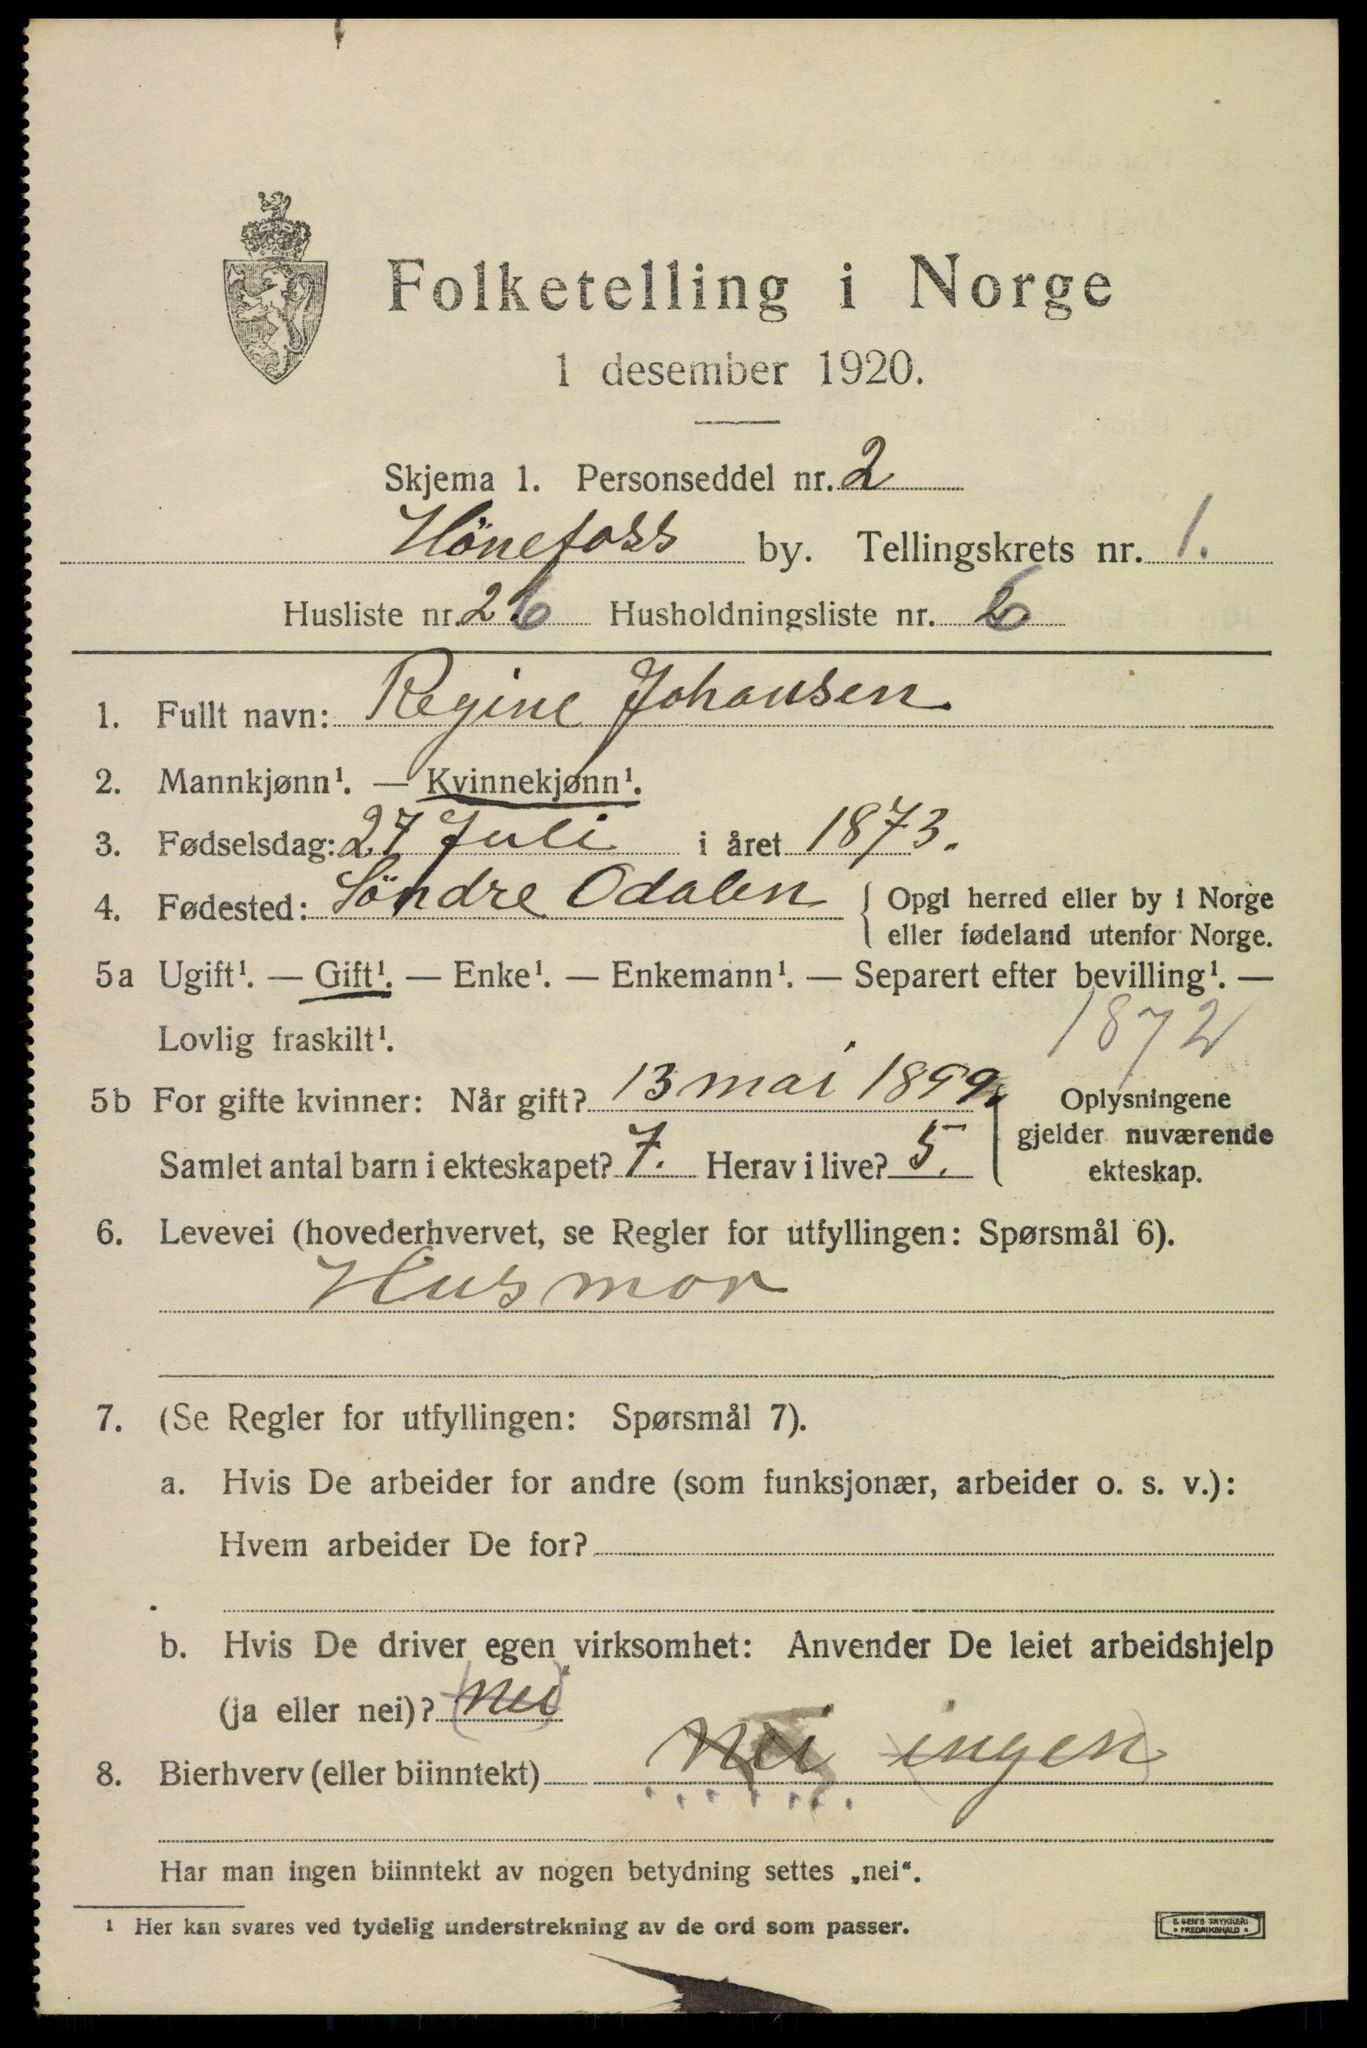 Folketelling i Norge
1 desember 1920.
Skjema 1. Personseddel nr. 2
Hönefoss by. Tellingskrets nr. 1.
Husliste nr. 26 Husholdningsliste nr. 6
1. Fullt navn: Regine Johansen
2. Mannkjønn¹. — Kvinnekjønn¹.
3. Fødselsdag: 27 Juli i året 1873.
4. Fødested: Söndre Odalen { Opgi herred eller by i Norge
eller fødeland utenfor Norge.
5a Ugift¹. — Gift¹. — Enke¹. — Enkemann¹. — Separert efter bevilling¹. —
Lovlig fraskilt¹.
1872
5b For gifte kvinner: Når gift? 13 mai 1899. Oplysningene
gjelder nuværende
Samlet antal barn i ekteskapet? 7. Herav i live? 5. ekteskap.
6. Levevei (hovederhvervet, se Regler for utfyllingen: Spørsmål 6).
Husmor
7. (Se Regler for utfyllingen: Spørsmål 7).
a. Hvis De arbeider for andre (som funksjonær, arbeider o. s. v.):
Hvem arbeider De for?
b. Hvis De driver egen virksomhet: Anvender De leiet arbeidshjelp
(ja eller nei)? (nei)
8. Bierhverv (eller biinntekt) nei (ingen)
Har man ingen biinntekt av nogen betydning settes „nei“.
¹ Her kan svares ved tydelig understrekning av de ord som passer.
TRYKKERI
FREDRIKSHALD